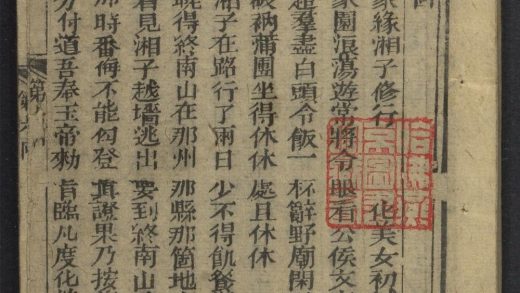 家緣湘子修行 化美女初
家園浪蕩遊常將冷眼看公侯文
羣盡白頭令飯一杯辭野廟閑
破衲蒲團坐得休休處且休休
湘子在路行了兩日少不得飢餐
曉得終南山在那州那縣那箇地
看見湘子越墻逃出要到終南山
那時番悔不能勾登眞證果乃按
分付道吾奉玉帝勑旨臨凡度化
第